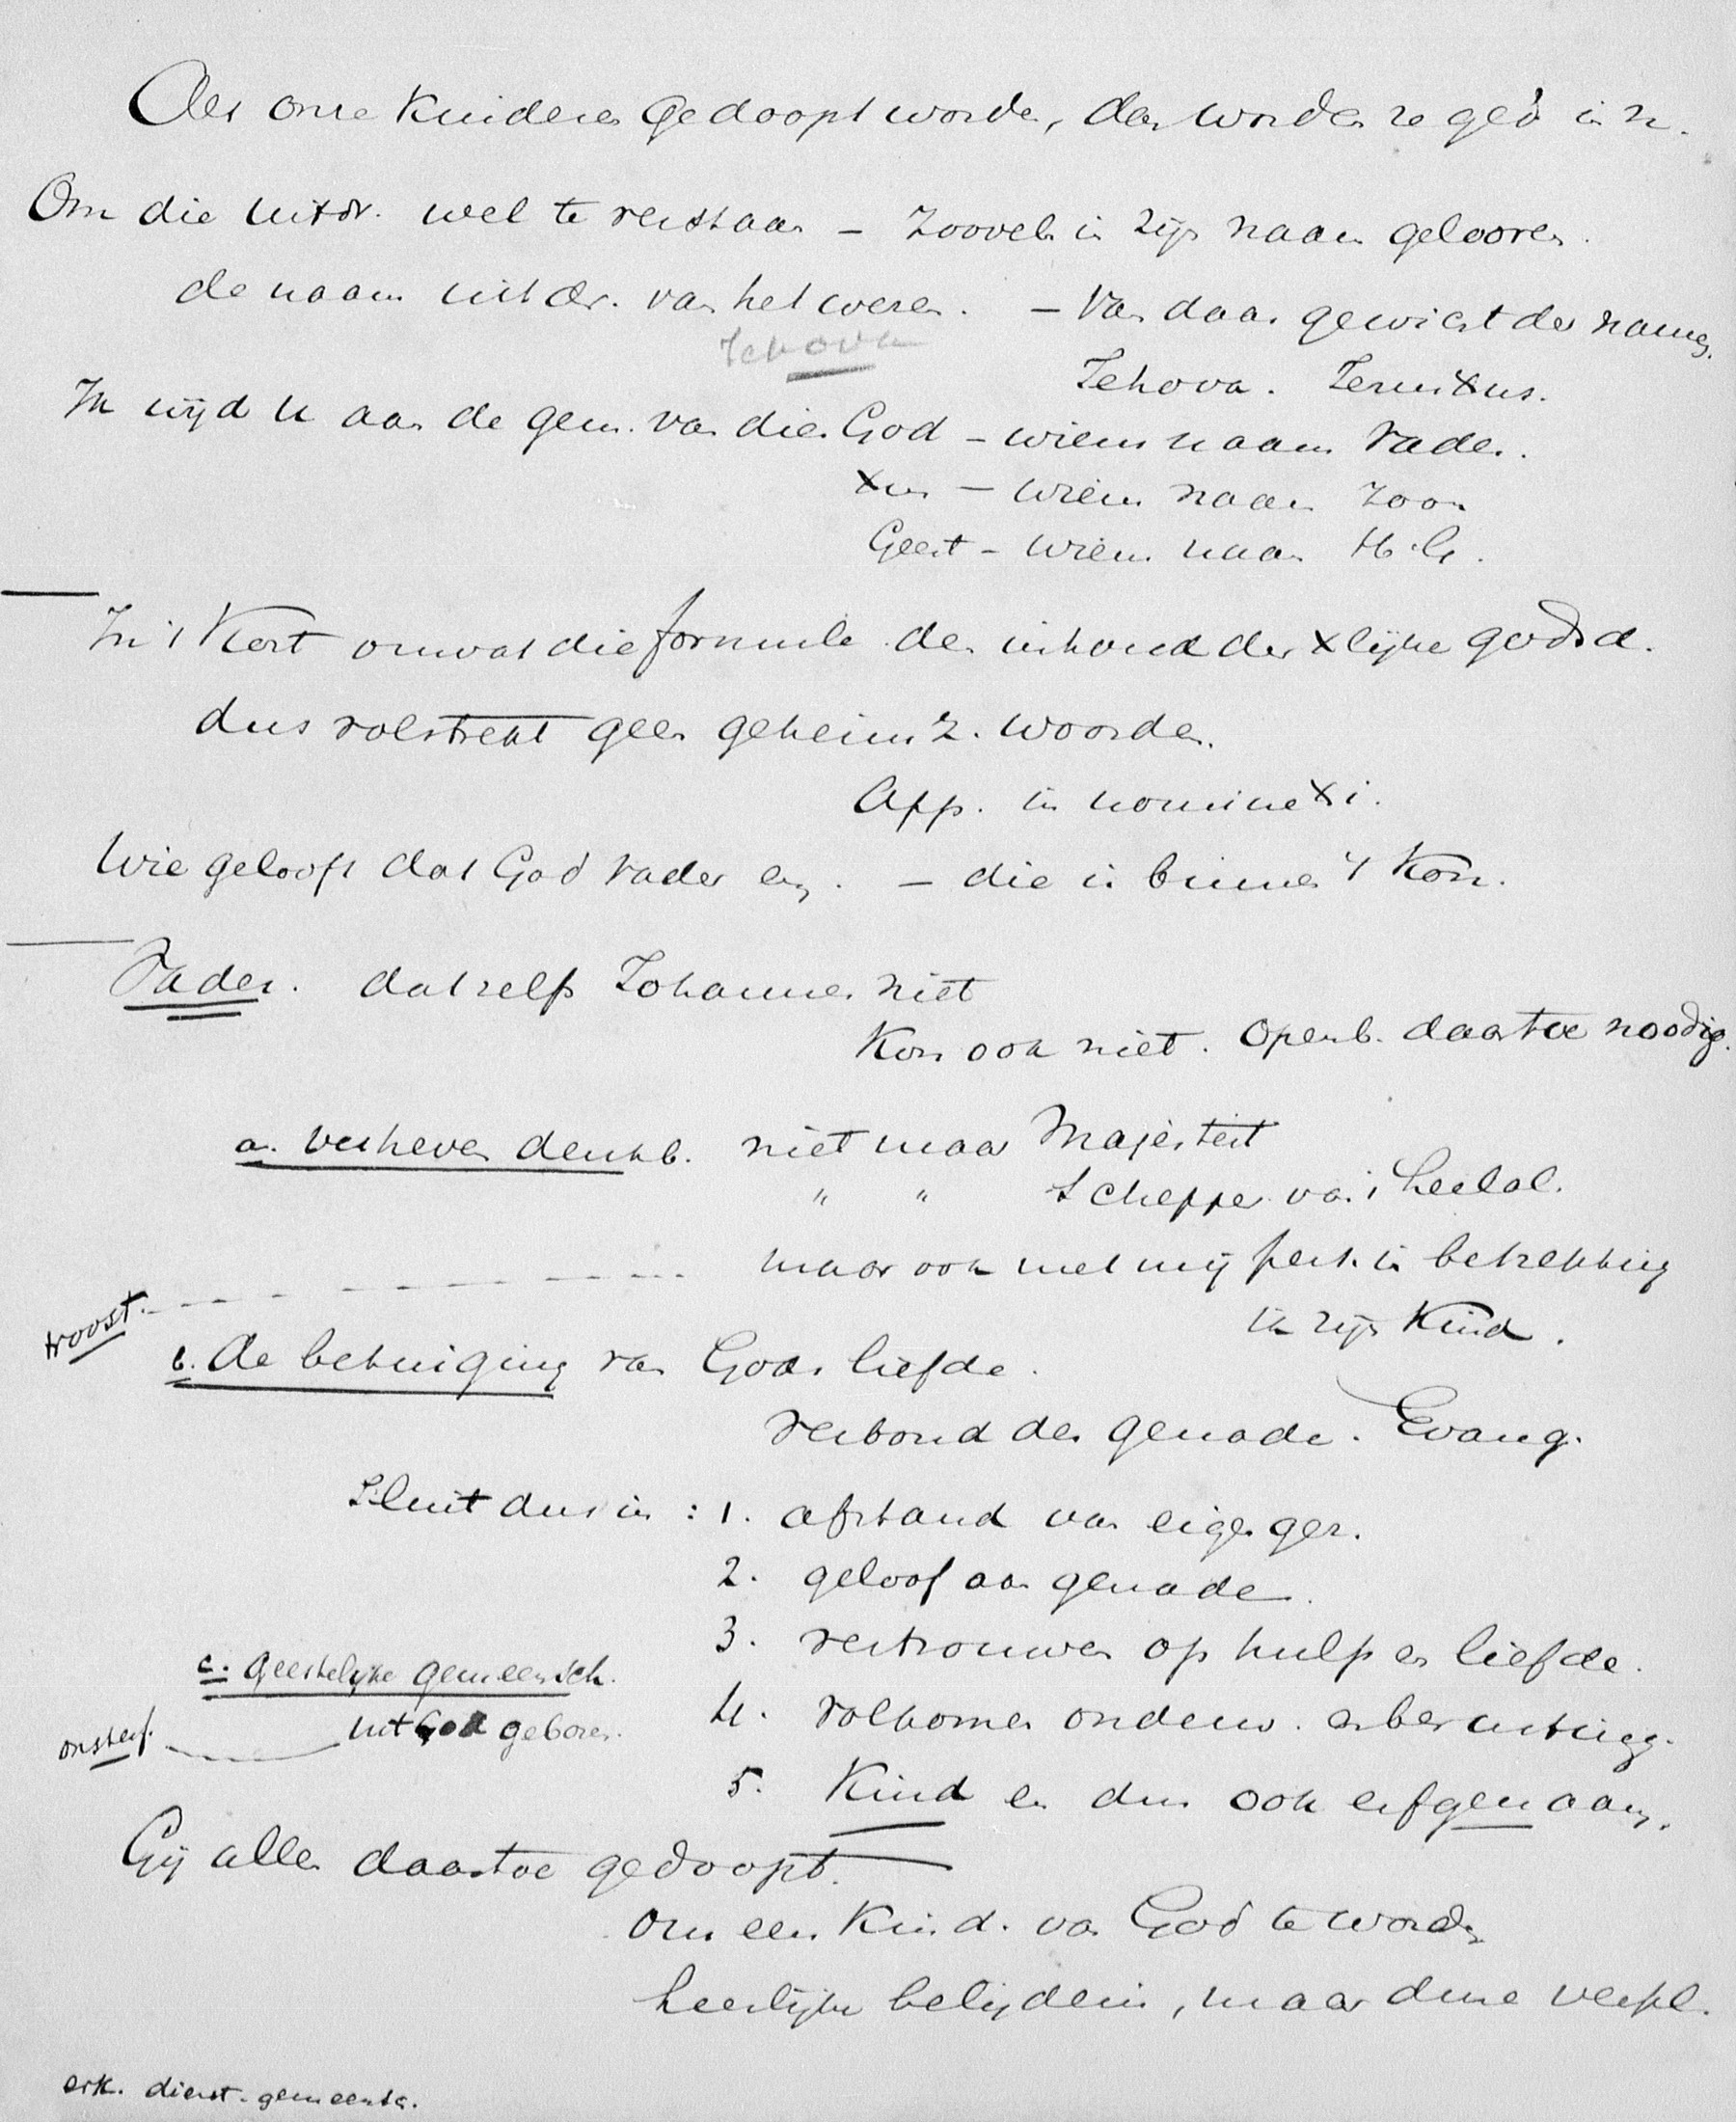 Als onze kinderen gedoopt worden, dan worden ze ged in n.
Om die uitdr. wel te verstaan – zoovelen in zijn naam gelooven.
de naam uitdr. van het wezen. – Van daar gewicht der namen.
Jehova
Jehova. Jezus Xus.
Ik wijd u aan de gem. van dien God – wiens naam Vader.
Xus – wiens naam Zoon
Geest – wiens naam H. G.
In 't kort omvat die formule den inhoud der Xlijke godsd.
dus volstrekt geen geheimz. woorden.
App. in nomine Xi.
Wie gelooft dat God Vader enz. – die is binnen 't Kon.
Vader. dat zelfs Johannes niet
Kon ook niet. Openb. daartoe noodig.
a. verheven denkb. niet maar Majesteit
" " Schepper van 't heelal.
maar ook met mij pers. in betrekking
troost.
ik zijn Kind.
b. de betuiging van Gods liefde.
verbond der genade. Evang.
Sluit dus in : 1. afstand van eigen ger.
2. geloof aan genade.
3. vertrouwen op hulp en liefde.
c. geestelijke gemeensch.
4. volkomen onderw. en berusting.
onsterf. uit God geboren.
5. Kind en dus ook erfgenaam.
Gij allen daartoe gedoopt.
om een Kind van God te worden
heerlijke belijdenis, maar dure verpl.
erk. dienst. gemeensch.